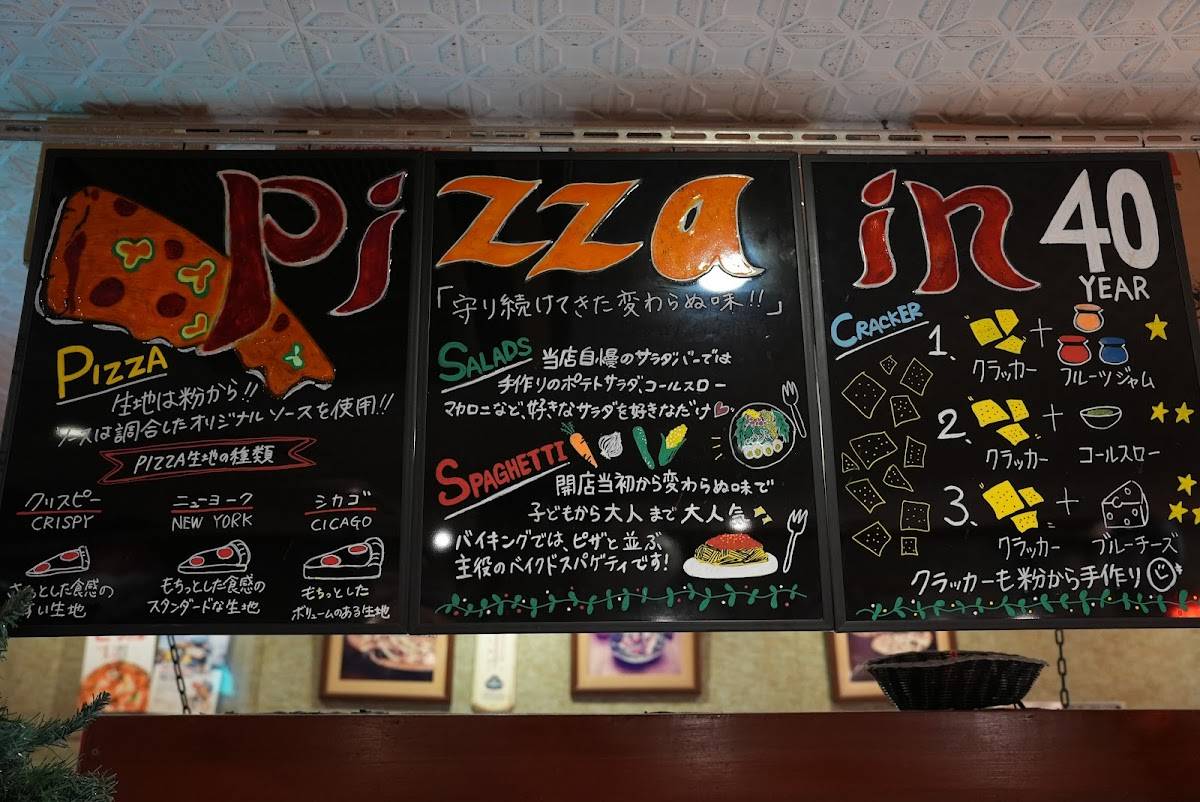 Pizza in 40
YEAR
PIZZA
生地は粉から!!
ソースは調合したオリジナルソースを使用!!
PIZZA生地の種類
クリスピー
CRISPY
ニューヨーク
NEW YORK
シカゴ
CICAGO
とした食感の
い生地
もちっとした食感の
スタンダードな生地
もちっとした
ボリュームのある生地
「守り続けてきた変わらぬ味!!」
SALADS 当店自慢のサラダバーでは
手作りのポテトサラダ、コールスロー
マカロニなど、好きなサラダを好きなだけ♡
SPAGHETTI
開店当初から変わらぬ味で
子どもから大人まで大人気
バイキングでは、ピザと並ぶ
主役のベイクドスパゲティです!
CRACKER
1. クラッカー + フルーツジャム
2. クラッカー + コールスロー
3. クラッカー + ブルーチーズ
クラッカーも粉から手作り